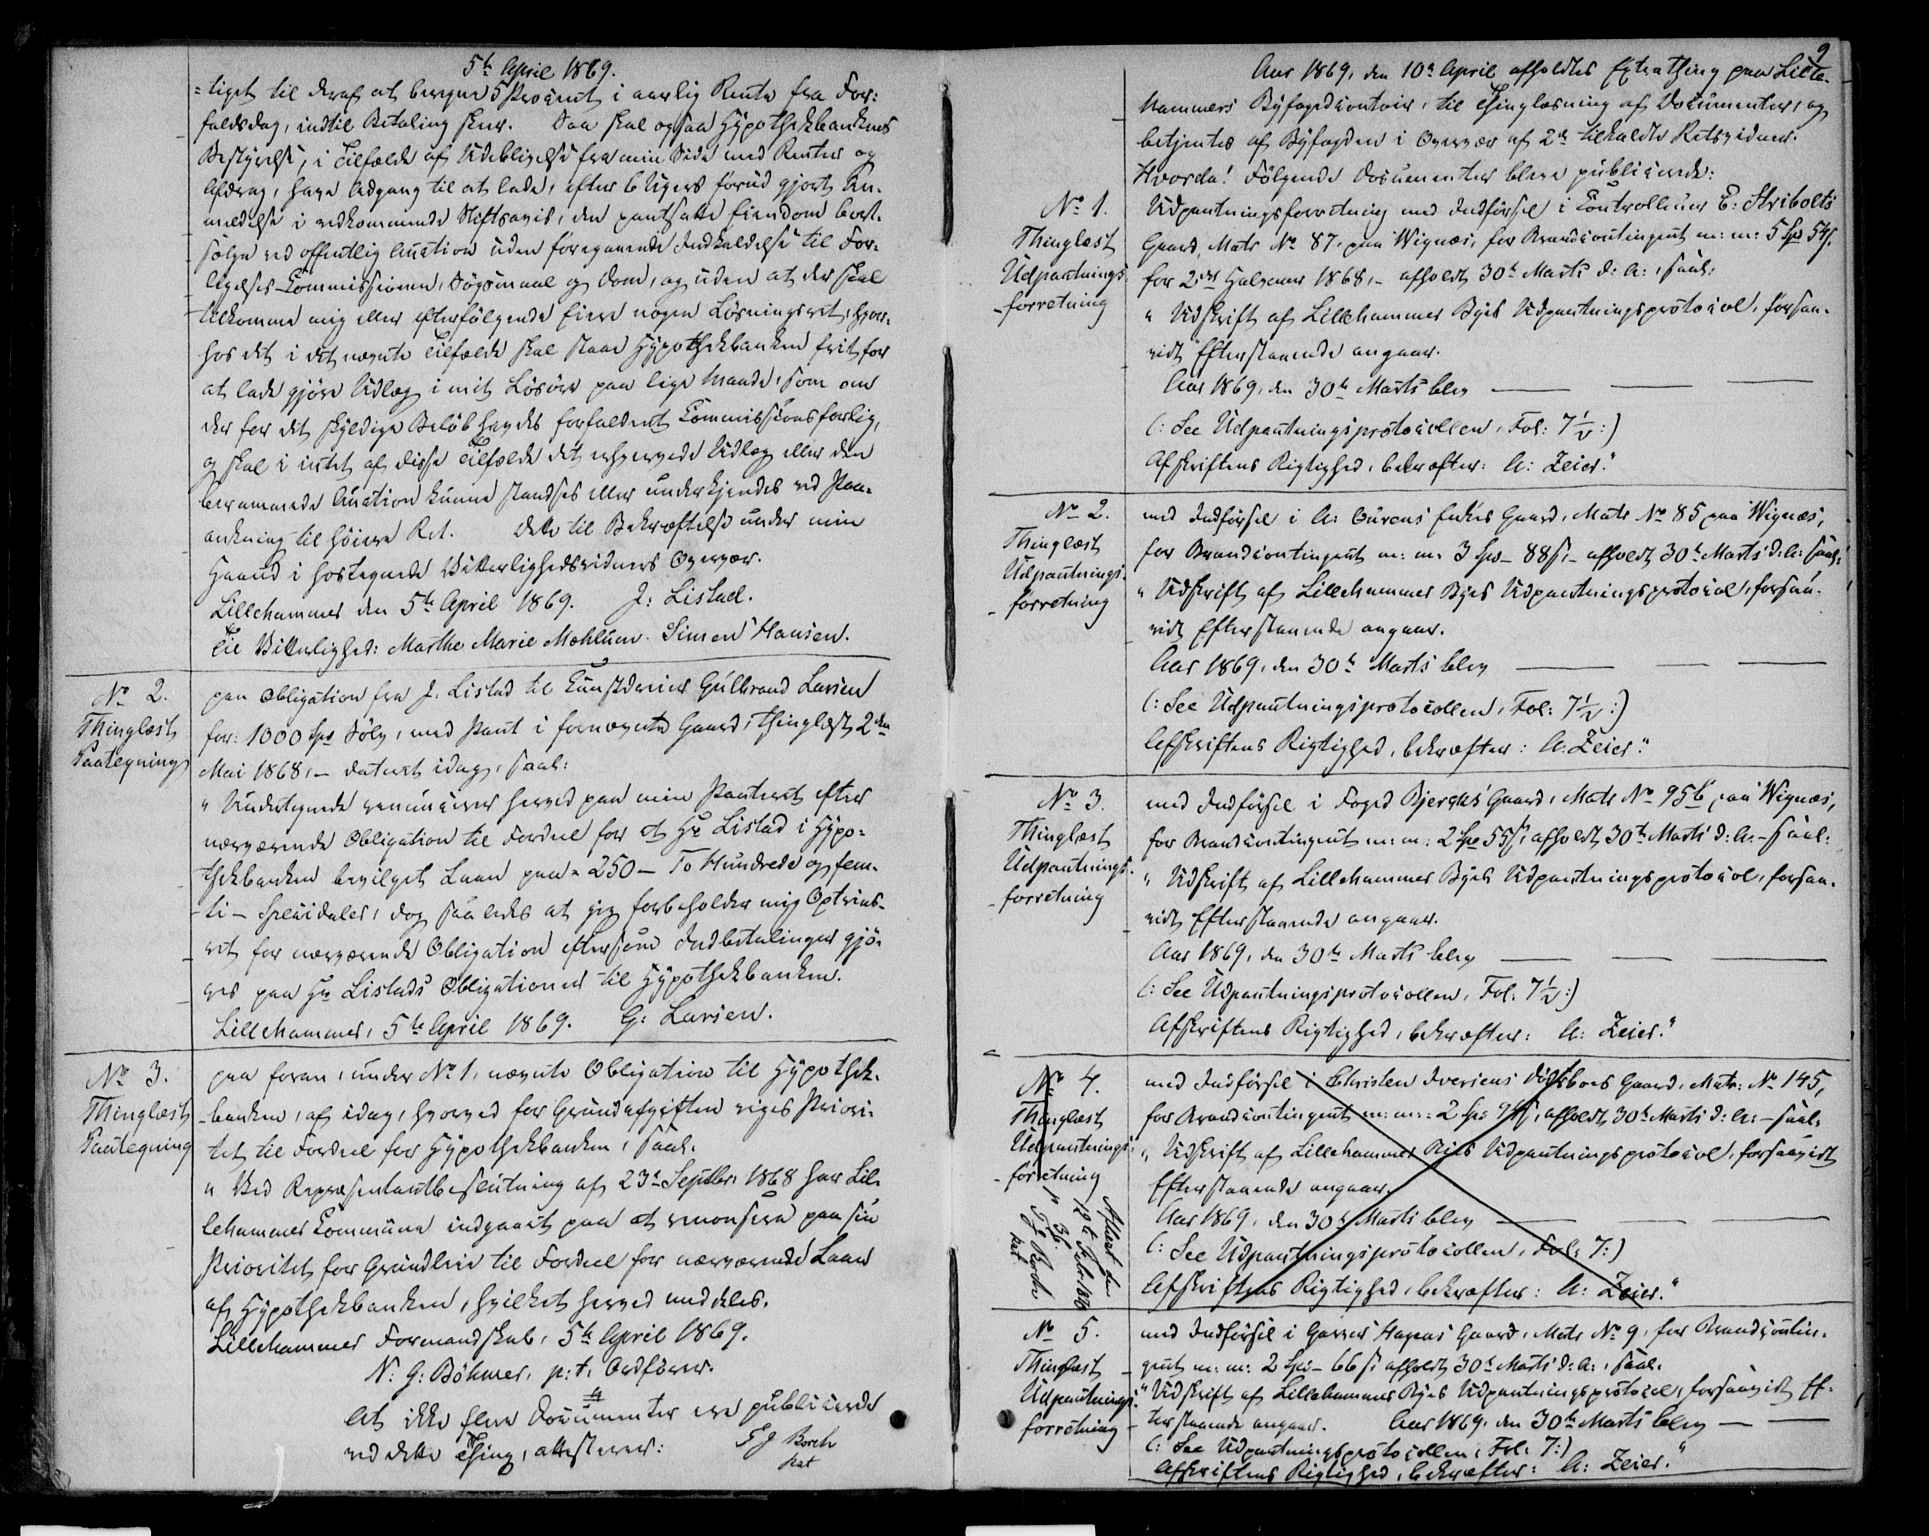 5te April 1869.
=tiget til deraf at beregne 5 Procent i aarlig Rente fra For=
faldsdag, indtil Betaling skeer. Saa skal ogsaa Hypothekbankens
Bestyrelse, i Tilfælde af Udeblivelse fra min Side med Renter og
Afdrag, have Adgang til at lade, efter 6 Ugers forud gjort An-
meldelse i vedkommende Stiftsavis, den pantsatte Eiendom bort-
sælge ved offentlig Auction uden foregaaende Indkaldelse til For-
ligelses-Commissionen, Søgsmaal og Dom, og uden at der skal
tilkomme mig eller efterfølgende Eiere nogen Løsningsret, hvor-
hos det i det nævnte Tilfælde skal staae Hypothekbanken frit for
at lade gjøre Udlæg i mit Løsøre paa lige Maade, som om
der for det skyldige Beløb havdes forfaldent Commissionsforlig,
og skal i intet af disse Tilfælde det erhvervede Udlæg eller den
berammede Auction kunne standses eller underkjendes ved Paa-
ankning til høiere Ret. Dette til Bekræftelse under min
Haand i hostegnede Vitterlighedsvidners Overvær.
Lillehammer den 5te April 1869. J: Listad.
Til Vitterlighed: Marthe Marie Mæhlum. Simen Hansen.
No 2.
Thinglæst
Paategning
paa Obligation fra J. Listad til Kunstdreier Gulbrand Larsen
for: 1000 Spd Sølv, med Pant i fornævnte Gaard, thinglæst 2den
Mai 1868, - dateret idag, saal:
"Undertegnede renuncierer herved paa min Panteret efter
nærværende Obligation til Fordeel for et Hr Listad i Hypo-
thekbanken bevilget Laan paa - 250 - To Hundrede og fem-
ti - Speciedaler, dog saaledes at jeg forbeholder mig Optrins-
ret for nærværende Obligation eftersom Indbetalinger gjø-
res paa Hr Listads Obligationer til Hypothekbanken.
Lillehammer, 5te April 1869. G: Larsen.
No 3.
Thinglæst
Paategning
paa foran, under No 1, nævnte Obligation til Hypothek-
banken, af idag, hvorved for Grundafgiften viges Priori-
tet til Fordeel for Hypothekbanken, saal.
"Ved Repræsentantbeslutning af 23de Septbr. 1868 har Lil-
lehammer Commune indgaaet paa at renonsere paa sin
Prioritet for Grundleie til Fordeel for nærværende Laan
af Hypothekbanken, hvilket herved meddeles.
Lillehammer Formandskab, 5te April 1869.
N. G: Böhmer, p: t. Ordfører.
At ikke flere Documenter ere publicerede
ved dette Thing, attesterer:
Borch
9
Aar 1869, den 10de April afholdtes Extrathing paa Lille-
hammers Byfogedcontoir, til Thinglæsning af Documenter, og
betjentes af Byfogden i Overvær af 2de tilkaldte Retsvidner.
Hvorda! Følgende Documenter bleve publicerede:
No 1.
Thinglæst
Udpantnings-
forretning
Udpantningsforretning med Indførsel i Controlleur E: Stribolts
Gaard, Matr No 87, paa Wignæs, for Brandcontingent m: m: 5 Spd 54 s.
for 2det Halvaar 1868, - afholdt 30te Marts d: A:, saal:
"Udskrift af Lillehammer Byes Udpantningsprotocol, forsaa-
vidt Efterstaaende angaar.
Aar 1869, den 30te Marts blev
(: See Udpantningsprotocollen, Fol: 7 1/2 :)
Afskriftens Rigtighed, bekræfter: A: Zeier."
No 2.
Thinglæst
Udpantnings-
forretning
med Indførsel i A: Gaard, Matr No 85 paa Wignæs,
for Brandcontingent m: m: 3 Spd - 88 s, - afholdt 30te Marts d: A: saal:
"Udskrift af Lillehammer Byes Udpantningsprotocol, forsaa-
vidt Efterstaaende angaar.
Aar 1869, den 30te Marts blev
(: See Udpantningsprotocollen, Fol: 7 1/2 :)
Afskriftens Rigtighed, bekræfter: A: Zeier."
No 3.
Thinglæst
Udpantnings-
forretning
med Indførsel i Foged Bjerckes Gaard, Matr No 95b, paa Wignæs,
for Brandcontingent m: m: 2 Spd 55 s, afholdt 30te Marts d: A: - saal:
"Udskrift af Lillehammer Byes Udpantningsprotocol, forsaa-
vidt Efterstaaende angaar.
Aar 1869, den 30te Marts blev
(: See Udpantningsprotocollen, Fol: 7 1/2 :)
Afskriftens Rigtighed, bekræfter: A: Zeier."
No 4.
Thinglæst
Udpantnings-
forretning
Aflæst
med Indførsel i Christen Iversens Dødsboes Gaard, Matr: No 145,
for Brandcontingent m: m: - 2 Spd afholdt 30te Marts d: A: - saal.
"Udskrift af Lillehammer Byes Udpantningsprotocol, forsaavidt
Efterstaaende angaar.
Aar 1869, den 30te Marts blev
(: See Udpantningsprotocollen, Fol: 7 :)
Afskriftens Rigtighed, bekræfter: A: Zeier."
No 5.
Thinglæst
Udpantnings-
forretning
med Indførsel i Garver Hagens Gaard, Matr No 9, for Brandcontin-
gent m: m: 2 Spd - 66 s, afholdt 30te Marts d: A:, saal.
"Udskrift af Lillehammer Byes Udpantningsprotocol, forsaavidt Ef-
terstaaende angaar. Aar 1869, den 30te Marts blev
(: See Udpantningsprotocollen, Fol: 7 :)
Afskriftens Rigtighed, bekræfter: A: Zeier."